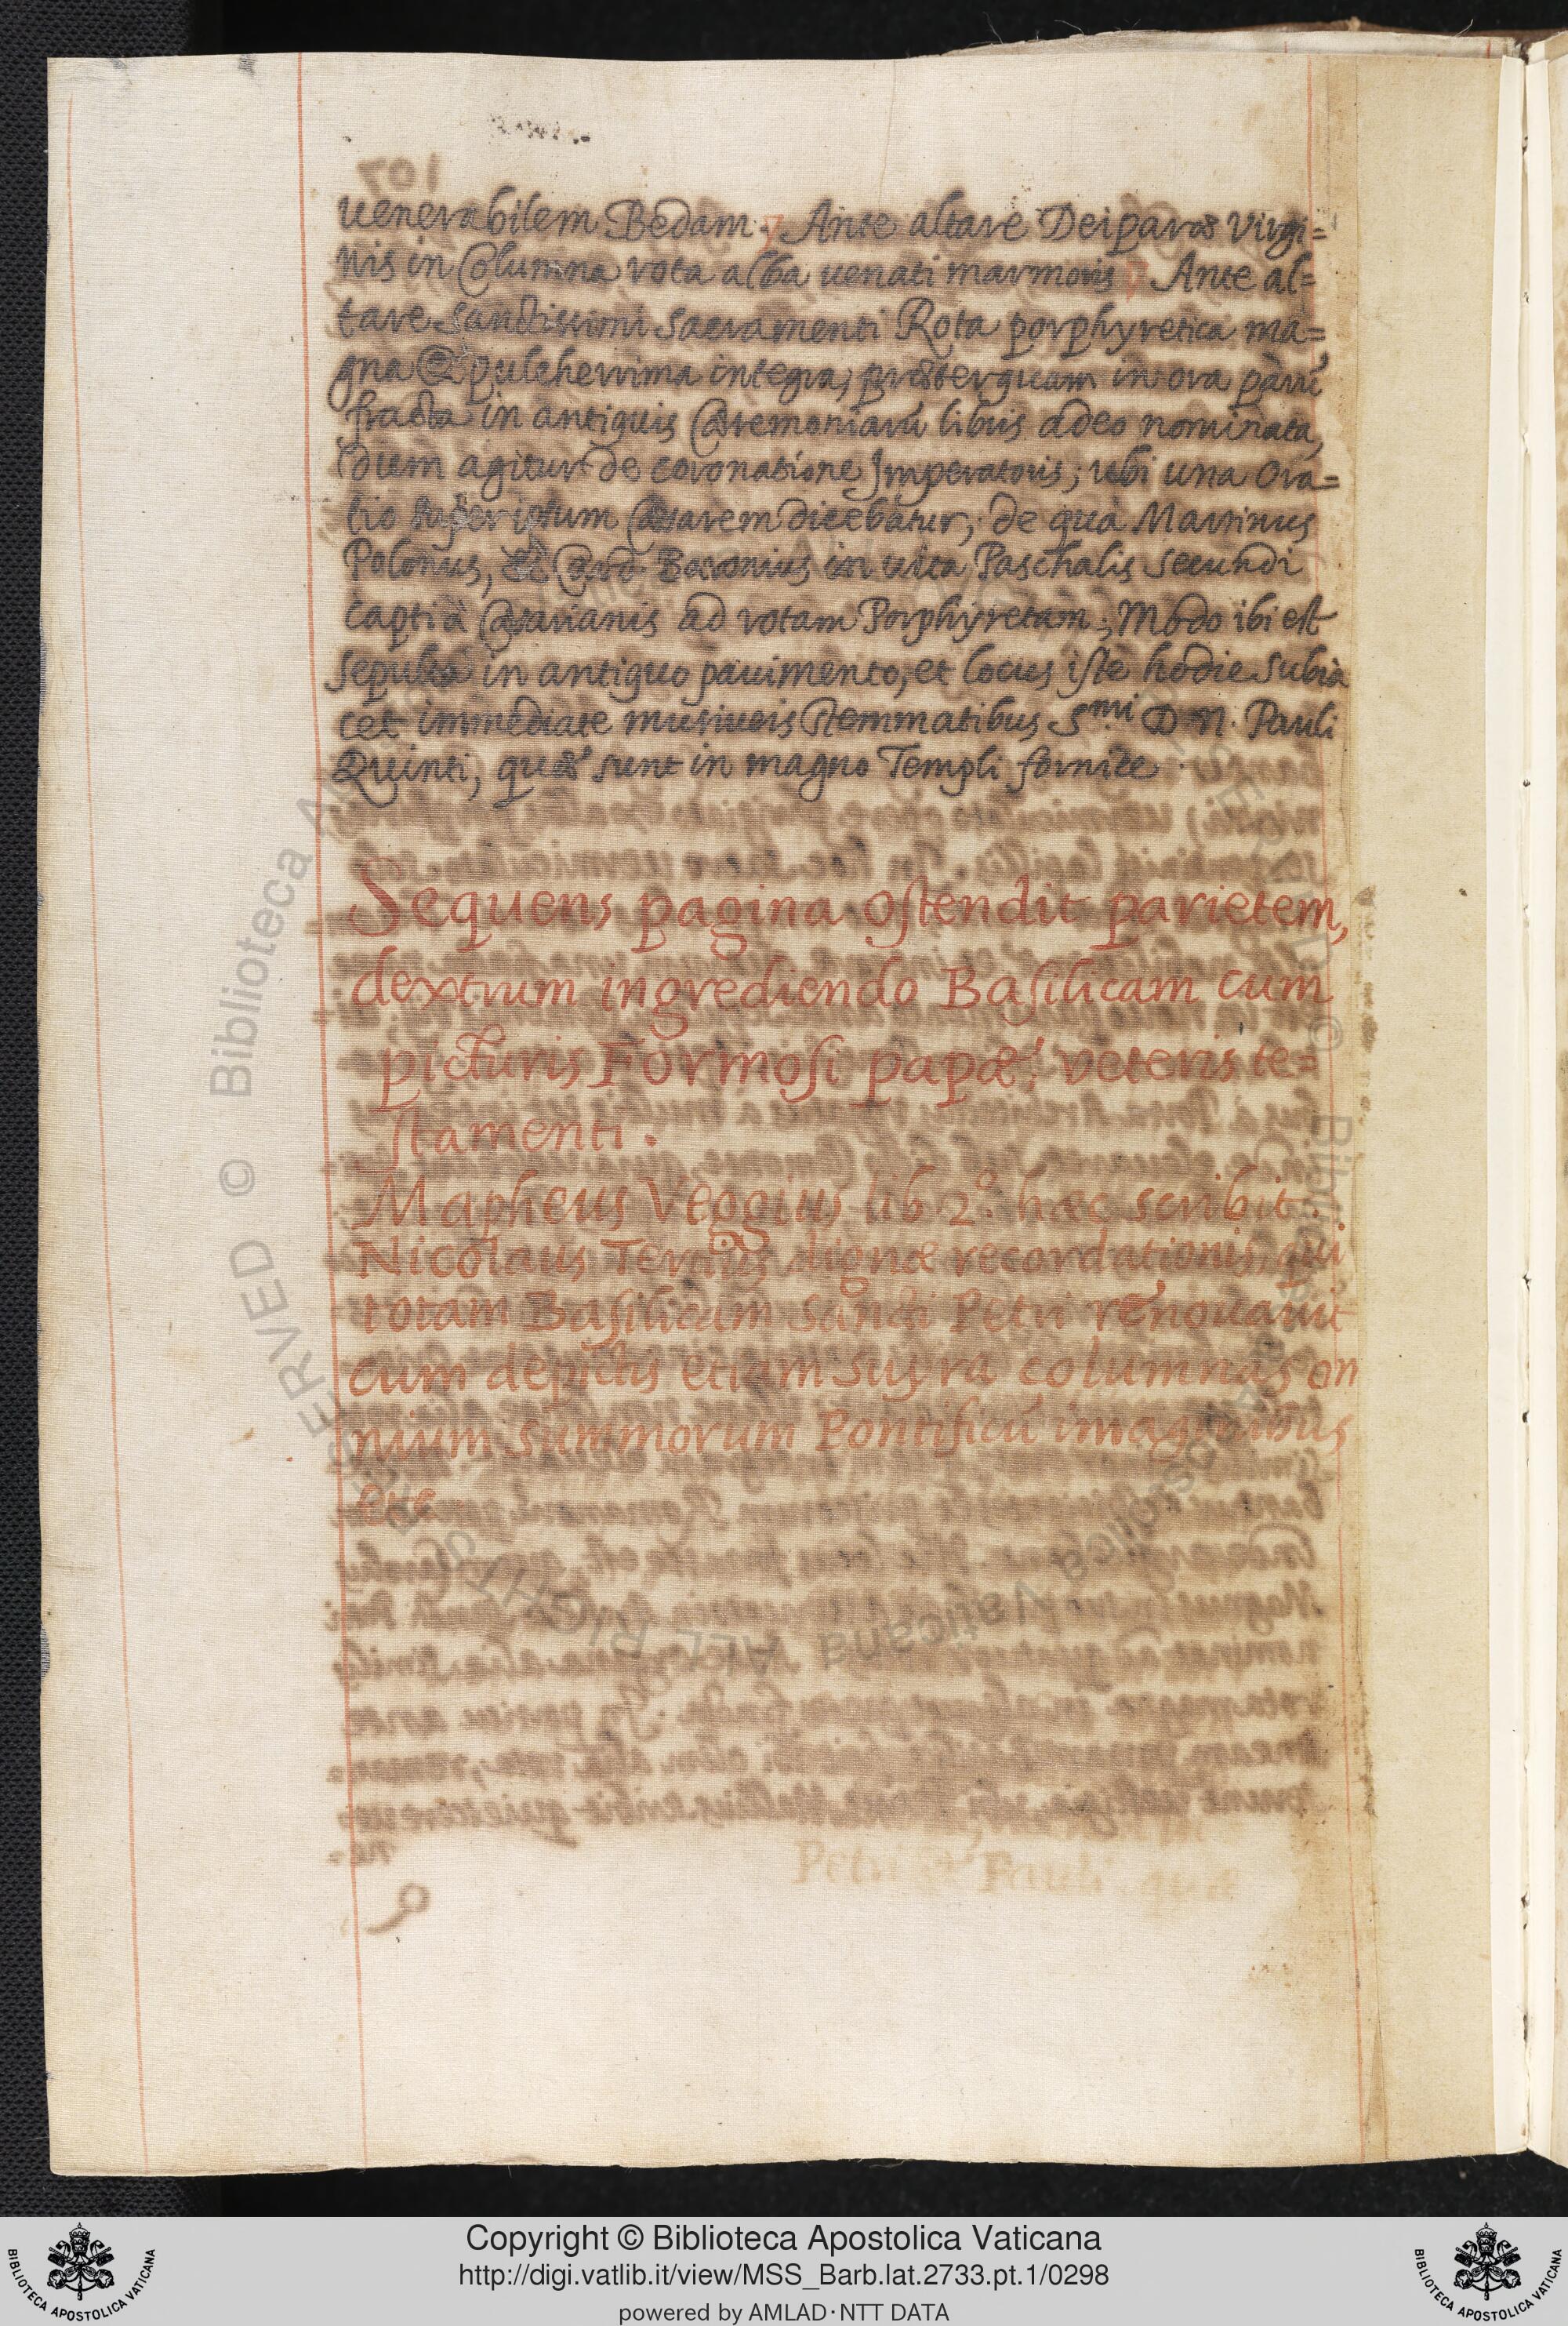 venerabilem Bedam. Ante altare Deiparæ Virgi=
nis in Columna rota alba uenati marmoris Ante al=
tare sanctissimi sacramenti Rota porphyretica ma=
gna & pulcherrima integra, præterquam in ora parū
fracta in antiquis Cæremoniarū libris adeo nominata,
dum agitur de coronatione Imperatoris; ubi una Ora=
tio super ipsum Cæsarem dicebatur; de qua Martinus
Polonus, et Card. Baronius in uita Paschalis secundi
capti à Cæsarianis ad rotam Porphyretam; Modo ibi est
sepulta in antiquo pauimento, et locus iste hodie subia
cet immediate musiueis stemmatibus Sᵐⁱ D N. Pauli
Quinti, quæ sunt in magno Templi fornice.
Sequens pagina ostendit parietem,
dextrum ingrediendo Basilicam cum
picturis Formosi papæ; veteris te=
stamenti.
Mapheus Veggius lib 2.º hæc scribit.
Nicolaus Tertius dignæ recordationis, qui
totam Basilicam sancti Petri renouauit
cum depictis etiam supra columnas om
nium summorum Pontificū imaginibus
etc
Petri et Pauli quæ
© Biblioteca Apostolica Vaticana ALL RIGHTS RESERVED
Copyright © Biblioteca Apostolica Vaticana
http://digi.vatlib.it/view/MSS_Barb.lat.2733.pt.1/0298
powered by AMLAD·NTT DATA
BIBLIOTECA APOSTOLICA VATICANA
BIBLIOTECA APOSTOLICA VATICANA